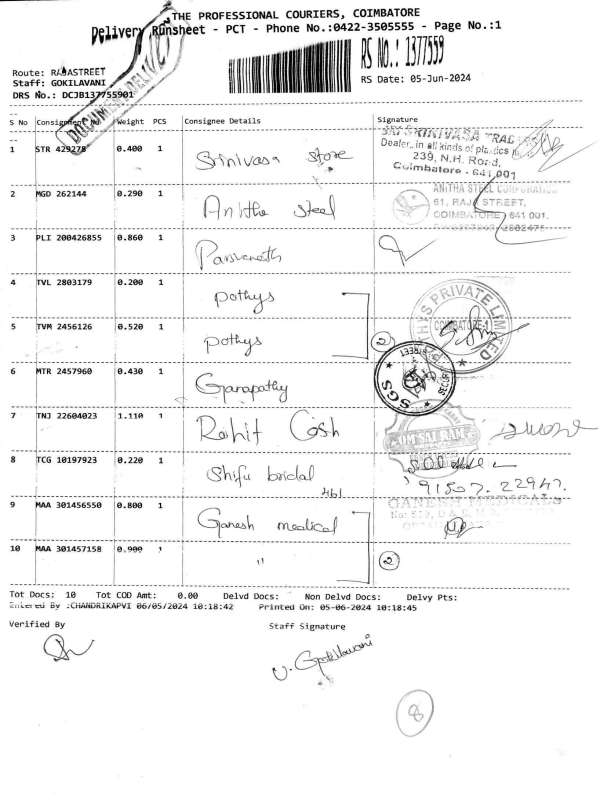 THE PROFESSIONAL COURIERS, COIMBATORE
Delivery Runsheet - PCT - Phone No.:0422-3505555 - Page No.:1
RS NO.: 1377559
Route: RAJASTREET
Staff: GOKILAVANI
RS Date: 05-Jun-2024
DRS No.: DCJB137755901
DOCUMENT DELIVERY
S No Consignment No Weight PCS Consignee Details Signature
1 STR 429278 0.400 1 Srinivasa store
SRI SRINIVASA TRADERS
Dealer in all kinds of plastics
239, N.H. Road,
Coimbatore - 641 001
2 MGD 262144 0.290 1 Anitha steel
ANITHA STEEL CORPORATION
61, RAJA STREET,
COIMBATORE 641 001.
3 PLI 200426855 0.860 1 Parsvanath
4 TVL 2803179 0.200 1 pothys
POTHYS PRIVATE LIMITED
COIMBATORE-1
5 TVM 2456126 0.520 1 pothys
2
6 MTR 2457960 0.430 1 Ganapathy
SGS SECURITY
7 TNJ 22604023 1.110 1 Rohit Cosh
OM SAI RAM
8 TCG 10197923 0.220 1 Shifu bridal
461
91507.22947.
9 MAA 301456550 0.800 1 Ganesh medical
GANESH MEDICALS
10 MAA 301457158 0.900 1 "
2
Tot Docs: 10 Tot COD Amt: 0.00 Delvd Docs: Non Delvd Docs: Delvy Pts:
Entered By :CHANDRIKAPVI 06/05/2024 10:18:42 Printed On: 05-06-2024 10:18:45
Verified By Staff Signature
V. Gokilavani
8